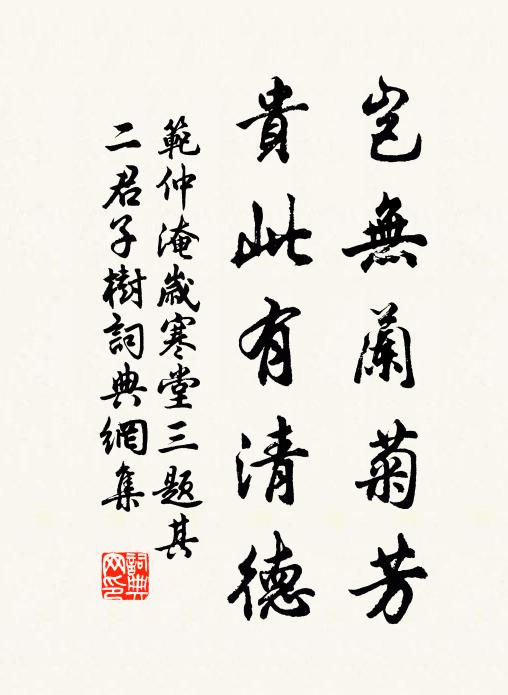 豈無蘭菊芳
貴此有清德
範仲淹歲寒堂三题其
二君子樹詞典網集
詞典
网印